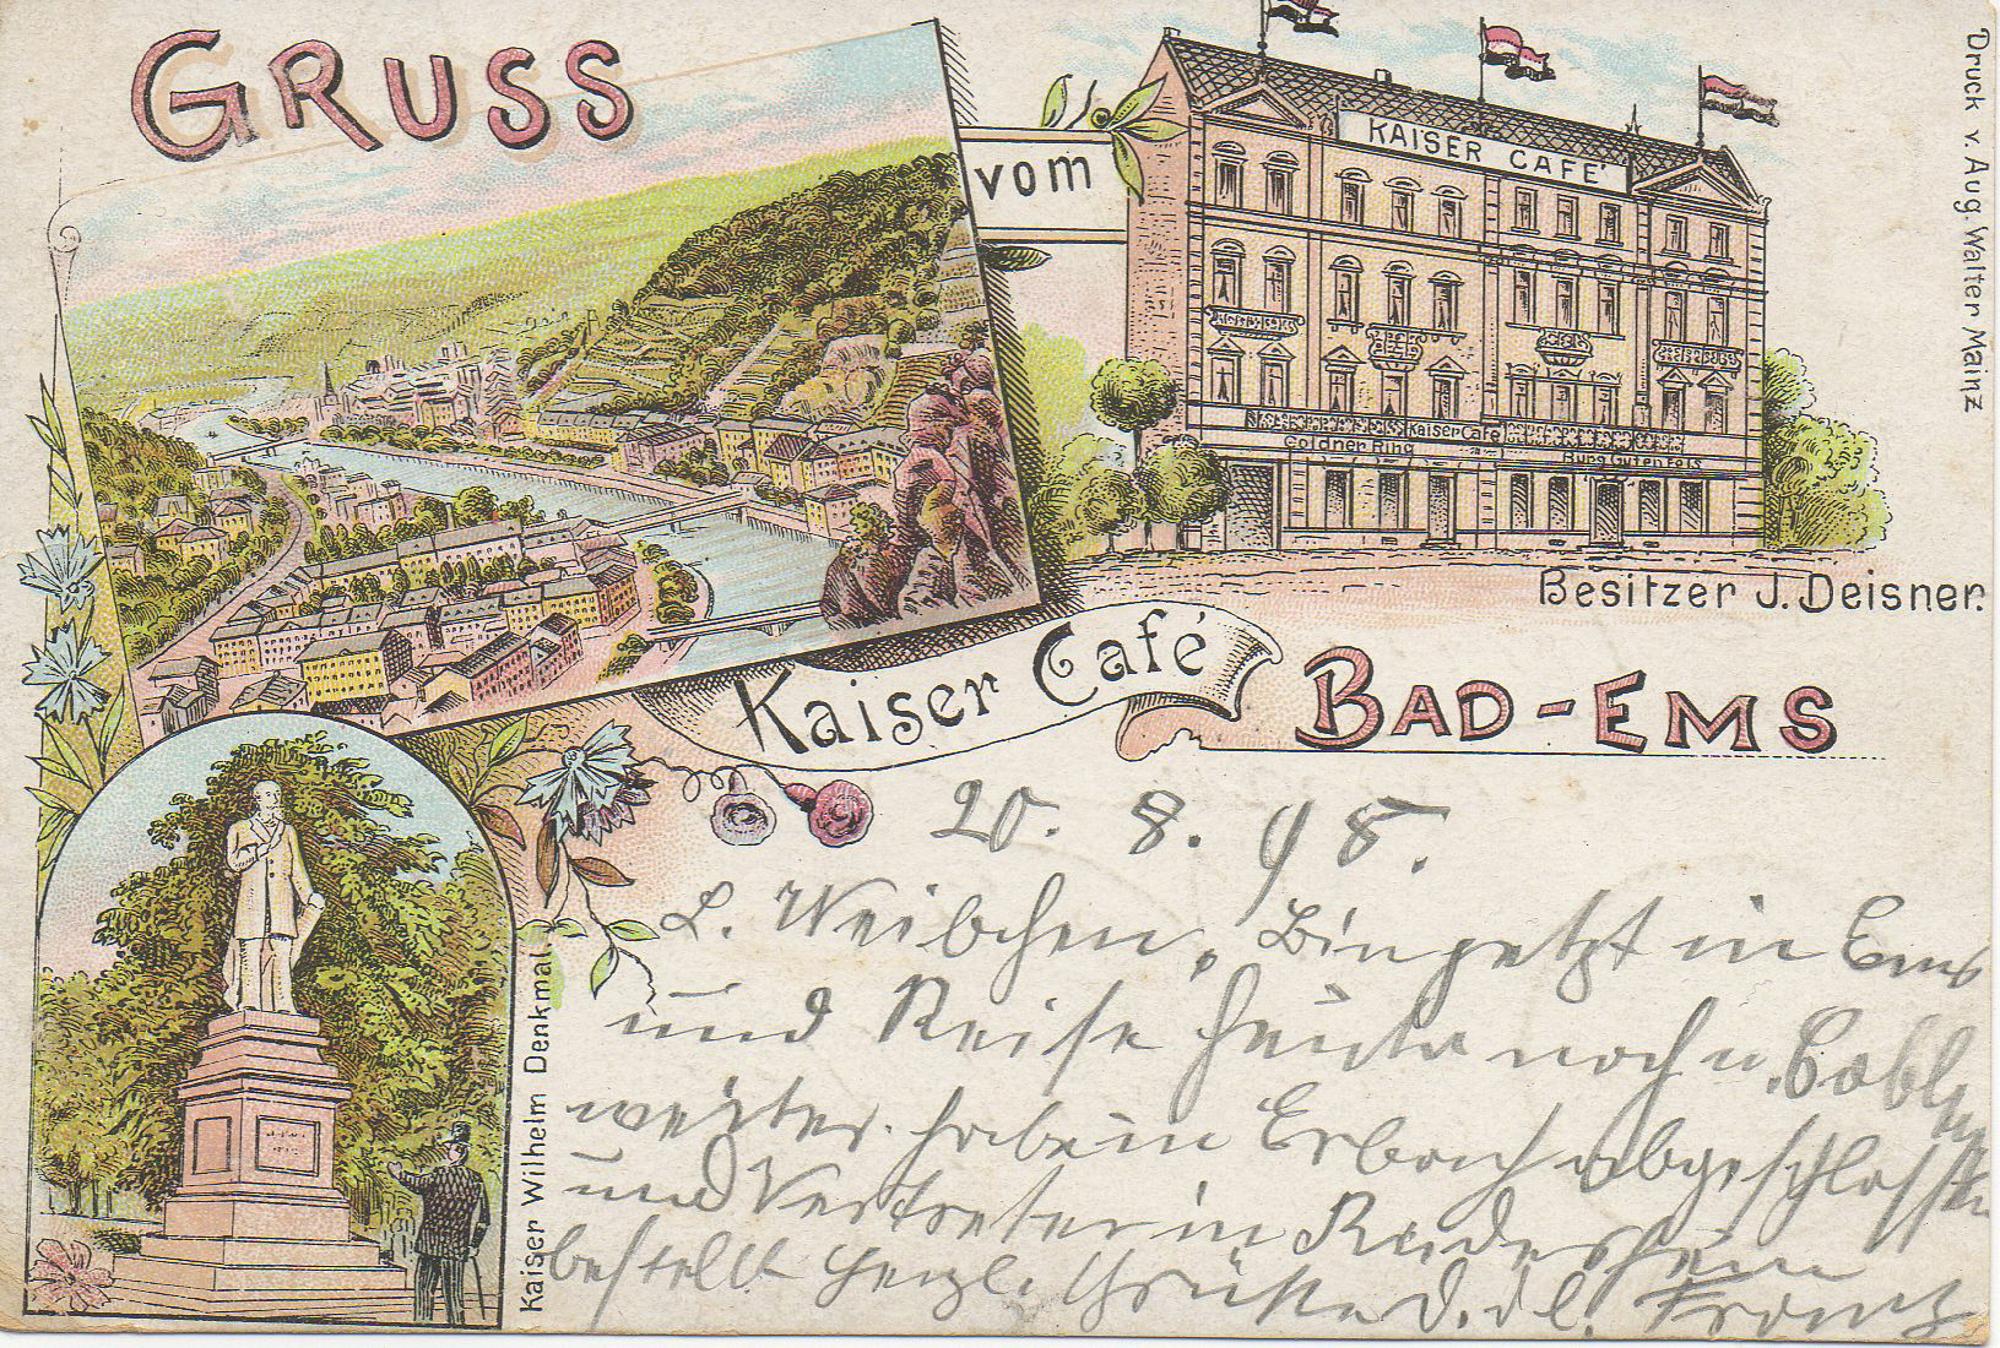 GRUSS
vom
KAISER CAFÉ
Kaiser Café
Goldner Ring
Burg Gutenfels
Besitzer J. Deisner.
Kaiser Café
BAD-EMS
Druck v. Aug. Walter Mainz
Kaiser Wilhelm Denkmal
20. 8. 98.
L. Weibchen, Bin jetzt in Ems
und Reise heute noch n. Coblenz
weiter. habe in Erbach abgeschlossen
und Vertreter in Rüdesheim
bestellt Herzl. Grüße d. dl. Franz